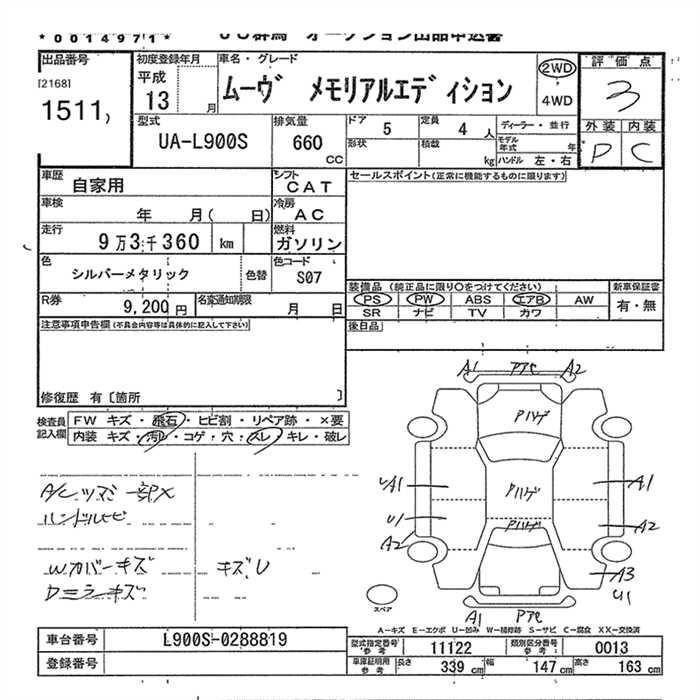 *0014971* UC群馬 オークション出品申込書
出品番号 初度登録年月 車名・グレード 評価点
[2168] 平成 ムーヴ メモリアルエディション 2WD 3
1511, 13 月 4WD
型式 排気量 ドア 定員 ディーラー・並行 外装 内装
UA-L900S 660 5 4 人 モデル年式 年 P C
CC 形状 積載 kg ハンドル 左・右
車歴 自家用 シフト CAT セールスポイント(正常に機能するものに限ります)
車検 年 月( 日) 冷房 AC
走行 9万3千360 km 燃料 ガソリン
色 シルバーメタリック 色替 色コード S07
装備品 (純正品に限り○をつけてください) 新車保証書
R券 9,200円 名変通知期限 月 日 PS PW ABS エアB AW 有・無
SR ナビ TV カワ
注意事項申告欄(不具合内容等は具体的に記入して下さい) 後日品
修復歴 有〔箇所 〕
検査員記入欄 FW キズ・飛石・ヒビ割・リペア跡・×要
内装 キズ・汚れ・コゲ・穴・スレ・キレ・破レ
A1 Pアセ A2
Pハゲ
A/Cツマミ一部× UA1 Pハゲ A1
ハンドルヒビ U1 Pハゲ A2
A2
Wカバーキズ キズU A3
ドミラーキズ U1
スペア A1 Pアセ
A-キズ E-エクボ U-凹み W-補修跡 S-サビ C-腐食 XX-交換済
車台番号 L900S-0288819 型式指定番号参考 11122 類別区分番号参考 0013
登録番号 車庫証明用参考 長さ 339 cm 幅 147 cm 高さ 163 cm